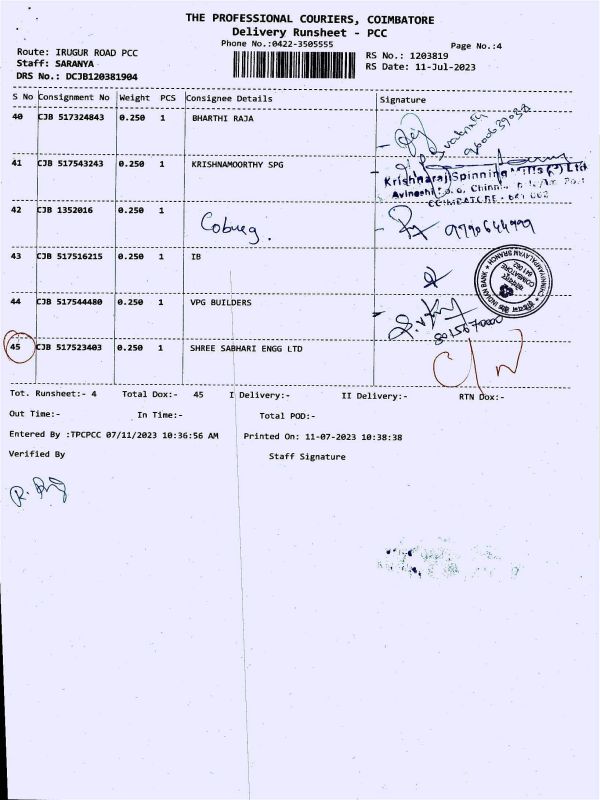 THE PROFESSIONAL COURIERS, COIMBATORE
Delivery Runsheet - PCC
Phone No.:0422-3505555
Page No.:4
Route: IRUGUR ROAD PCC
Staff: SARANYA
DRS No.: DCJB120381904
RS No.: 1203819
RS Date: 11-Jul-2023
S No Consignment No Weight PCS Consignee Details Signature
40 CJB 517324843 0.250 1 BHARTHI RAJA
41 CJB 517543243 0.250 1 KRISHNAMOORTHY SPG
Krishnaraj Spinning Mills (P) Ltd
COIMBATORE - 641 062
42 CJB 1352016 0.250 1 Cobueg. 9790644999
43 CJB 517516215 0.250 1 IB
INDIAN BANK
COIMBATORE
641 062
44 CJB 517544480 0.250 1 VPG BUILDERS
45 CJB 517523403 0.250 1 SHREE SABHARI ENGG LTD
Tot. Runsheet:- 4 Total Dox:- 45 I Delivery:- II Delivery:- RTN Dox:-
Out Time:- In Time:- Total POD:-
Entered By :TPCPCC 07/11/2023 10:36:56 AM Printed On: 11-07-2023 10:38:38
Verified By Staff Signature